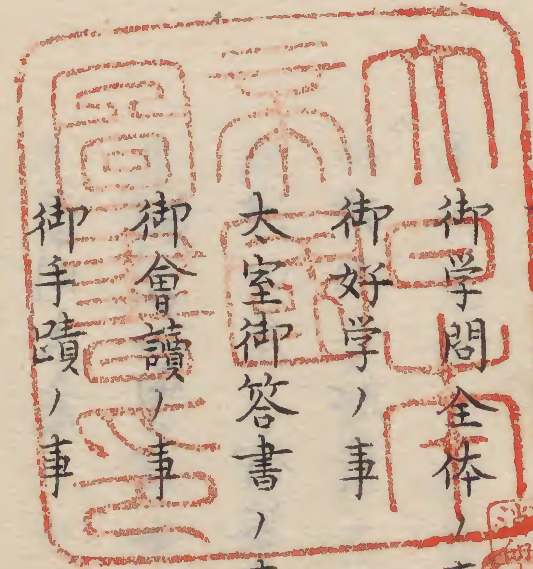 御学問全体ノ事
御好学ノ事
大室御答書ノ事
御會讀ノ事
御手蹟ノ事